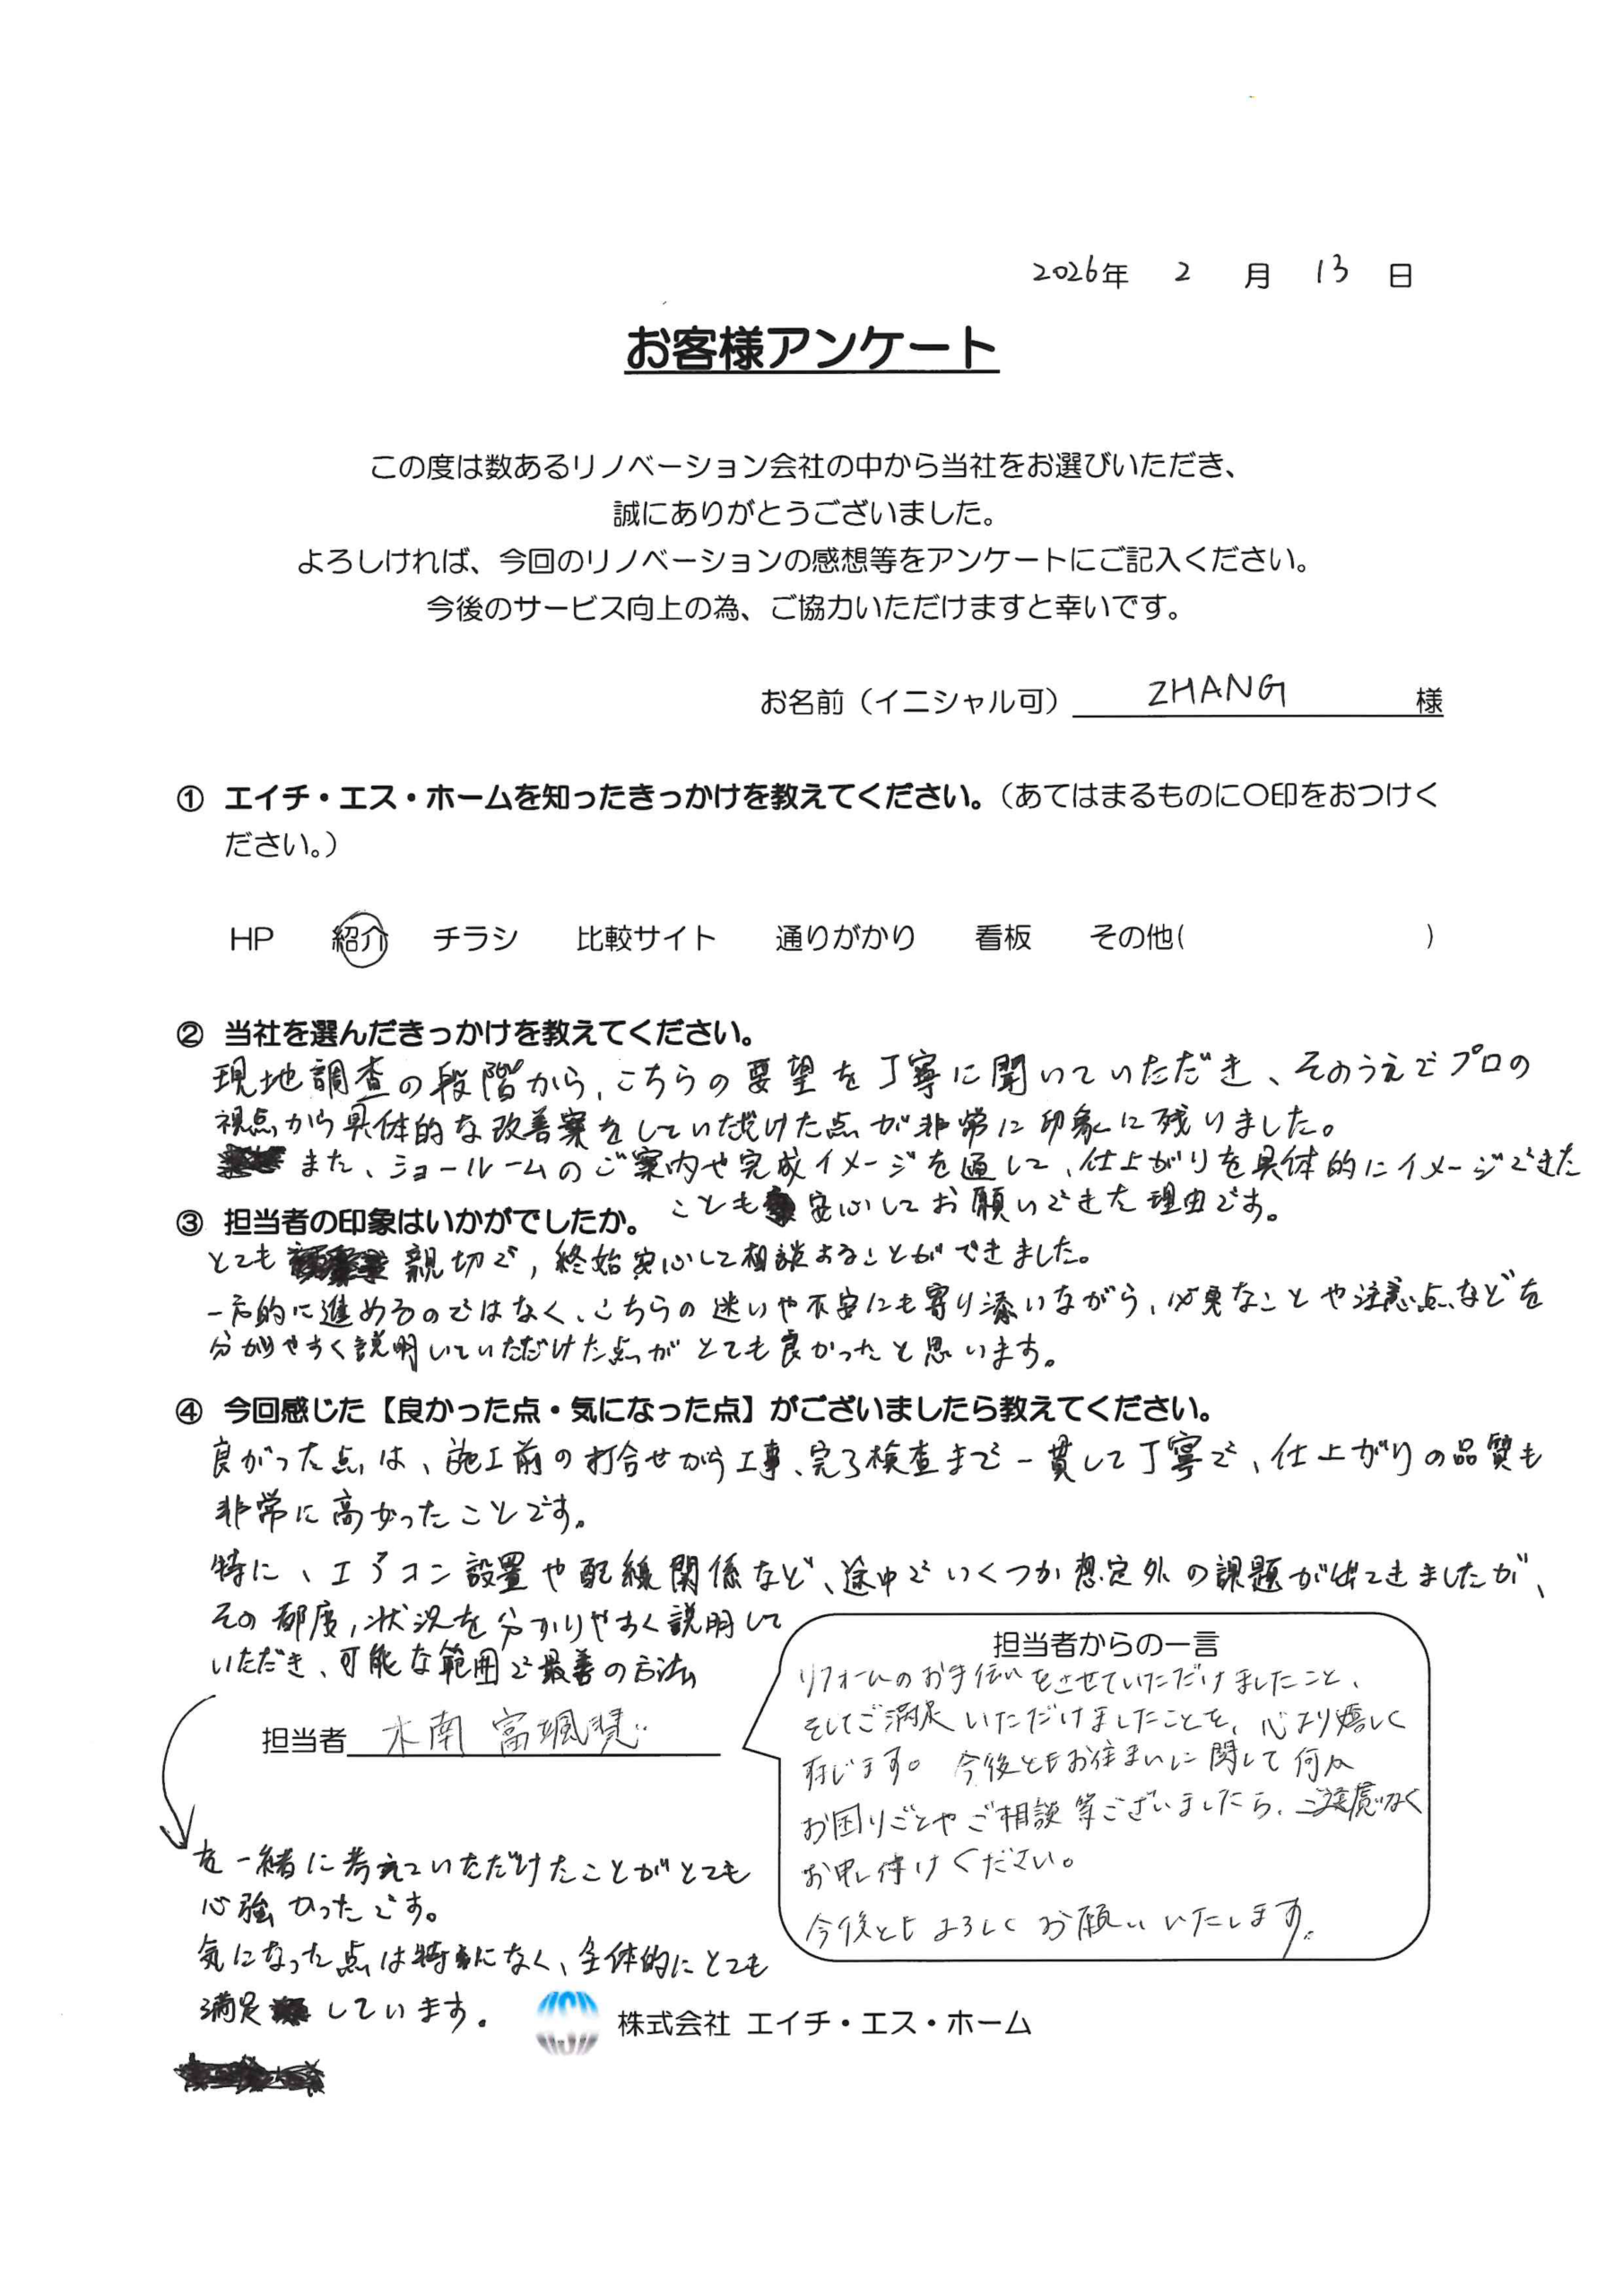 2026年 2 月 13 日
お客様アンケート
この度は数あるリノベーション会社の中から当社をお選びいただき、
誠にありがとうございました。
よろしければ、今回のリノベーションの感想等をアンケートにご記入ください。
今後のサービス向上の為、ご協力いただけますと幸いです。
お名前（イニシャル可） ZHANG 様
① エイチ・エス・ホームを知ったきっかけを教えてください。（あてはまるものに〇印をおつけく
ださい。）
HP 紹介 チラシ 比較サイト 通りがかり 看板 その他( )
② 当社を選んだきっかけを教えてください。
現地調査の段階から、こちらの要望を丁寧に聞いていただき、そのうえでプロの
視点から具体的な改善案をしていただけた点が非常に印象に残りました。
また、ショールームのご案内や完成イメージを通して、仕上がりを具体的にイメージできた
ことも安心してお願いできた理由です。
③ 担当者の印象はいかがでしたか。
とても親切で、終始安心して相談することができました。
一方的に進めるのではなく、こちらの迷いや不安にも寄り添いながら、必要なことや注意点などを
分かりやすく説明していただけた点がとても良かったと思います。
④ 今回感じた【良かった点・気になった点】がございましたら教えてください。
良かった点は、施工前の打合せから工事、完了検査まで一貫して丁寧で、仕上がりの品質も
非常に高かったことです。
特に、エアコン設置や配線関係など、途中でいくつか想定外の課題が出てきましたが、
その都度、状況を分かりやすく説明して
いただき、可能な範囲で最善の方法
担当者 木南
を一緒に考えていただけたことがとても
心強かったです。
気になった点は特になく、全体的にとても
満足しています。
担当者からの一言
リフォームのお手伝いをさせていただけましたこと、
そしてご満足いただけましたことを、心より嬉しく
存じます。今後ともお住まいに関して何か
お困りごとやご相談等ございましたら、ご遠慮なく
お申し付けください。
今後ともよろしくお願いいたします。
株式会社 エイチ・エス・ホーム